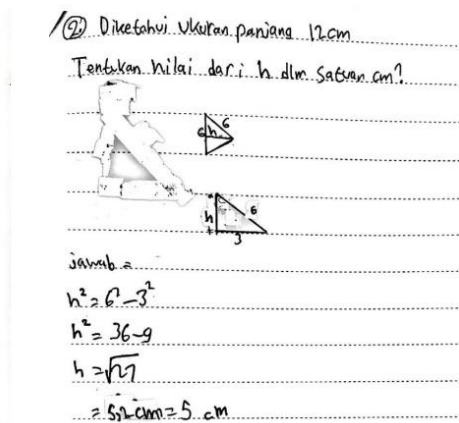 2. Diketahui Ukuran panjang 12 cm
Tentukan nilai dari h dlm satuan cm?
6 h 6
h 6
3
jawab =
h² = 6² - 3²
h² = 36 - 9
h = √27
= 5,2 cm = 5 cm